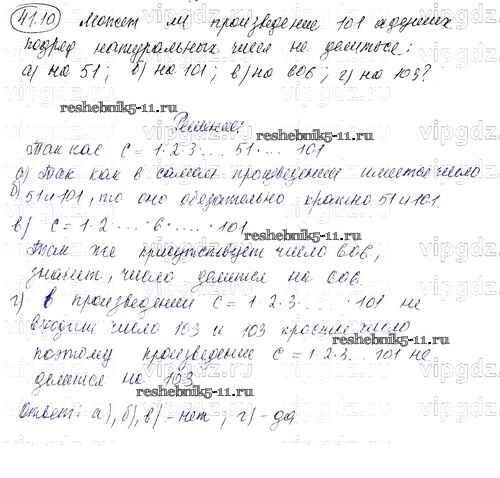 41.10 Может ли произведение 101 идущих
подряд натуральных чисел не делиться:
а) на 51; б) на 101; в) на 606; г) на 103?
reshebnik5-11.ru
Решение:
Так как c = 1·2·3·... 51·... 101
а) Так как в самом произведении имеется число
б) 51 и 101, то оно обязательно кратно 51 и 101.
в) c = 1·2·...·6·....·101
reshebnik5-11.ru
Там же присутствует число 606,
значит, число делится на 606.
г) в произведении c = 1·2·3·...·101 не
входит число 103 и 103 простое число
reshebnik5-11.ru
поэтому произведение c = 1·2·3...101 не
делится на 103
reshebnik5-11.ru
Ответ: а), б), в) - нет; г) - да
reshebnik5-11.ru
vipgdz